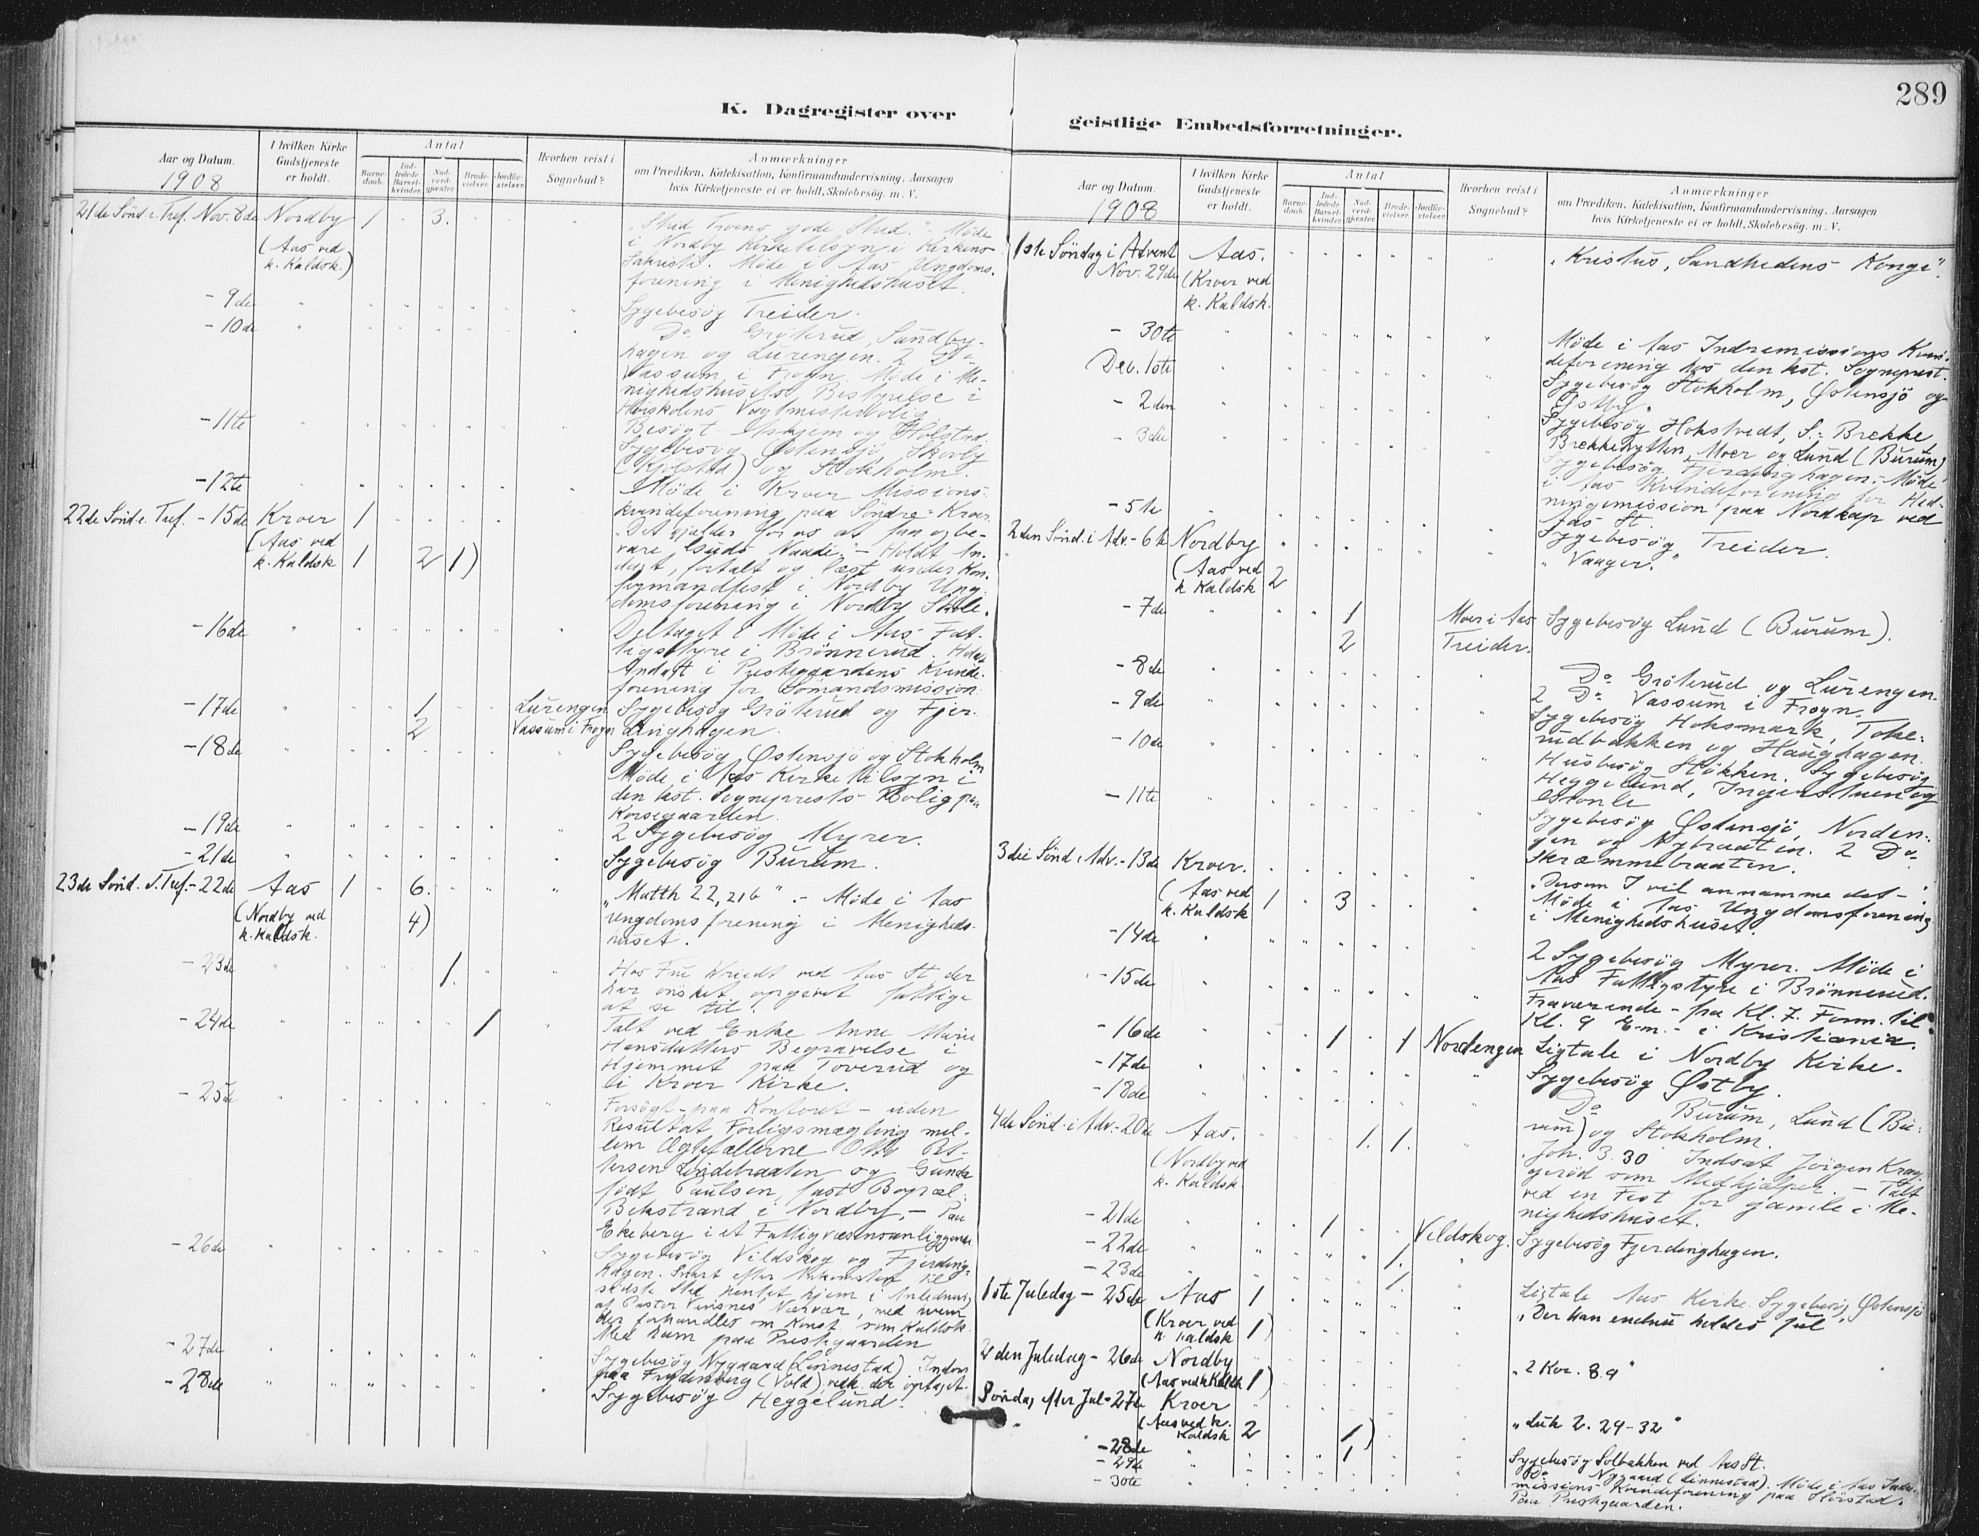 289
K. Dagregister over
geistlige Embedsforretninger.
Aar og Datum.
1908
I hvilken Kirke
Gudstjeneste
er holdt.
Antal
Barne-
daab.
Ind-
ledede
Barsel-
kvinder.
Nad-
verd-
gjæster.
Brude-
vielser.
Jordfæ-
stelser.
Hvorhen reist i
Sognebud?
Anmærkninger
om Prædiken, Katekisation, Konfirmandundervisning, Aarsagen
hvis Kirketjeneste ei er holdt, Skolebesøg. m. V.
21de Sönd e. Tref. Nov. 8de Nordby 1 3.
(Aas ved
k. Kaldsk.)
Möde
i Nordby Kirketilsyn i Kirkens
Sakristi. Möde i Aas Ungdoms-
forening i Menighedshuset.
- 9de Sygebesög Treider.
- 10de Do Gröterud, Sandby-
hagen og Lurengen. 2 Do
Vassum i Frogn. Möde i Me-
nighedshusets Bestyrelse i
Höiskolens Vagtmesterbolig.
- 11te Besögt Askjem og Holstad.
Sygebesög Östensjö, Skovby
(Kjölstad) og Stokholm
- 12te Möde i Kroer Missions-
kvindeforening paa Söndre Kroer.
22de Sönd e. Tref. - 15de Kroer 1
(Aas ved
k. Kaldsk 1 2 1)
"Det gjælder for os at faa og be-
vare Guds Naade". - Holdt An-
dagt, fortalt og læst under Kon-
firmandfest i Nordby Ung-
domsforening i Nordby Skole.
- 16de Deltaget i Möde i Aas Fat-
tigstyre i Brönnerud. Holdt
Andagt i Prestegaardens Kvinde-
forening for Sömandsmission.
- 17de 1 Lurengen Sygebesög Gröterud og Fjer-
2 Vassum i Frogn dinghagen.
- 18de Sygebesög Östensjö og Stokholm
Möde i Aas Kirketilsyn i
den kst. Sogneprests Bolig paa
Korsegaarden.
- 19de 2 Sygebesög Myrer.
- 21de Sygebesög Burum.
23de Sönd. e. Tref. - 22de Aas 1 6.
(Nordby ved
k. Kaldsk. 4)
"Matth 22, 21b". - Möde i Aas
Ungdomsforening i Menigheds-
huset.
- 23de 1. Hos Fru Wriedt ved Aas St. der
har önsket opgivet fattige
at se til.
- 24de 1 Talt ved Enke Anne Marie
Hansdatters Begravelse i
Hjemmet paa Toverud og
i Kroer Kirke.
- 25de Forsögt - paa Kontoret - uden
Resultat Forligsmægling mel-
lem Ægtefællerne Otto Pet-
tersen Lindebraaten og Gunda
födt Paulsen, fast Bopæl:
Bekstrand i Nordby, - Paa
Ekeberg i et Fattigvæsensanliggende
- 26de Sygebesög Vildskog og Fjerding-
hagen. Snart efter Ankomsten til
sidste Sted hentet hjem i Anledning
af Pastor Nærvær, med hvem
der forhandles om Konst. som Kaldsk.
Med ham paa Prestegaarden
- 27de Sygebesög Nygaard (Linnestad).
paa Frydenberg (Vold),
- 28de Sygebesög Heggelund.
Aar og Datum.
1908
I hvilken Kirke
Gudstjeneste
er holdt.
Antal
Barne-
daab.
Ind-
ledede
Barsel-
kvinder.
Nad-
verd-
gjæster.
Brude-
vielser.
Jordfæ-
stelser.
Hvorhen reist i
Sognebud?
Anmærkninger
om Prædiken, Katekisation, Konfirmandundervisning, Aarsagen
hvis Kirketjeneste ei er holdt, Skolebesøg. m. V.
1ste Söndag i Advent Aas. "Kristus, Sandhedens Konge".
Nov. 29de (Kroer ved
k. Kaldsk.
- 30te Möde i Aas Indremissions Kvin-
deforening hos den kst. Sogneprest.
Dec. 1ste Sygebesög Stokholm, Östensjö og
Östby.
- 2den Sygebesög Hokstvedt, S: Brekke,
Brekkehytten, Moer og Lund (Burum)
- 3die Sygebesög Fjerdinghagen. - Möde
i Aas Kvindeforening for Hed-
ningemission paa Nordkap ved
Aas St.
- 5te Sygebesög Treider.
2den Sönd. i Adv. - 6te Nordby "Vaager."
(Aas ved
k Kaldsk 2
- 7de 1 Moer i Aas Sygebesög Lund (Burum).
2 Treider.
- 8de Do Gröterud og Lurengen.
2 Do Vassum i Frogn.
- 9de Sygebesög Hoksmark, Toke-
rudbakken og Haughagen.
- 10de Husbesög Stökken. Sygebesög
Heggelund, Ingerstuen og
- 11te Sygebesög Östensjö, Norden-
gen og Nybraaten. 2 Do
Skræmmebraaten.
3die Sönd. i Adv. - 13de Kroer.
(Aas ved
k. Kaldsk 1 3
"Dersom I vil annamme det -".
Möde i Aas Ungdomsforening
i Menighedshuset.
- 14de 2 Sygebesög Myrer. Möde i
Aas Fattigstyre i Brönnerud.
- 15de Fraværende - fra Kl. 7 Form. til
Kl. 9 Em. - i Kristiania.
- 16de 1 1 Nordengen Ligtale i Nordby Kirke.
- 17de Sygebesög Östby.
- 18de Do Burum, Lund (Bu-
rum) og Stokholm.
4de Sönd. i Adv. - 20de Aas. 1. 1.
(Nordby ved
k. Kaldsk.
"Joh. 3. 30" Indsat Jörgen Krag
som Medhjælper. - Talt
ved en Fest for gamle i Me-
nighedshuset.
- 21de 1 Vildskog. Sygebesög Fjerdinghagen.
- 22de 1.
- 23de 1 Ligtale Aas Kirke. Sygebesög Östensjö
1ste Juledag - 25de Aas 1 "Der kan endnu holdes Jul"
(Kroer ved
k Kaldsk 1)
2den Juledag - 26de Nordby "2 Kor. 8.9"
(Aas ved k Kaldsk 1)
Söndag efter Jul - 27de Kroer "Luk 2. 29-32"
(Aas ved k.
Kaldsk 2 1)
- 28de 1 Sygebesög Solbakken ved Aas St.
- 29de Do Nygaard (Linnestad). Möde i Aas Indre-
missions Kvindeforening paa Hörstad.
- 30te Paa Prestegaarden.